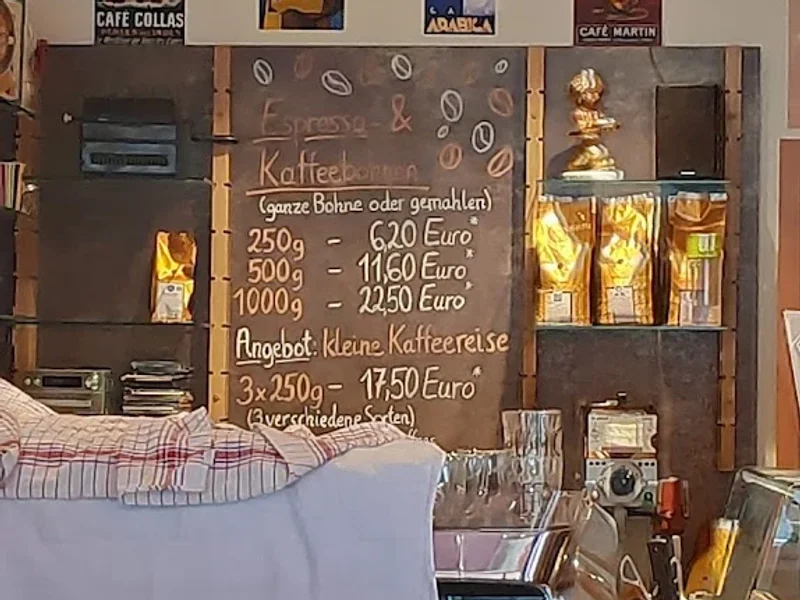 CAFÉ COLLAS
ARABICA
CAFÉ MARTIN
Espresso- &
Kaffeebohnen
(ganze Bohne oder gemahlen)
250g - 6,20 Euro*
500g - 11,60 Euro*
1000g - 22,50 Euro*
Angebot: kleine Kaffeereise
3x250g - 17,50 Euro*
(3 verschiedene Sorten)